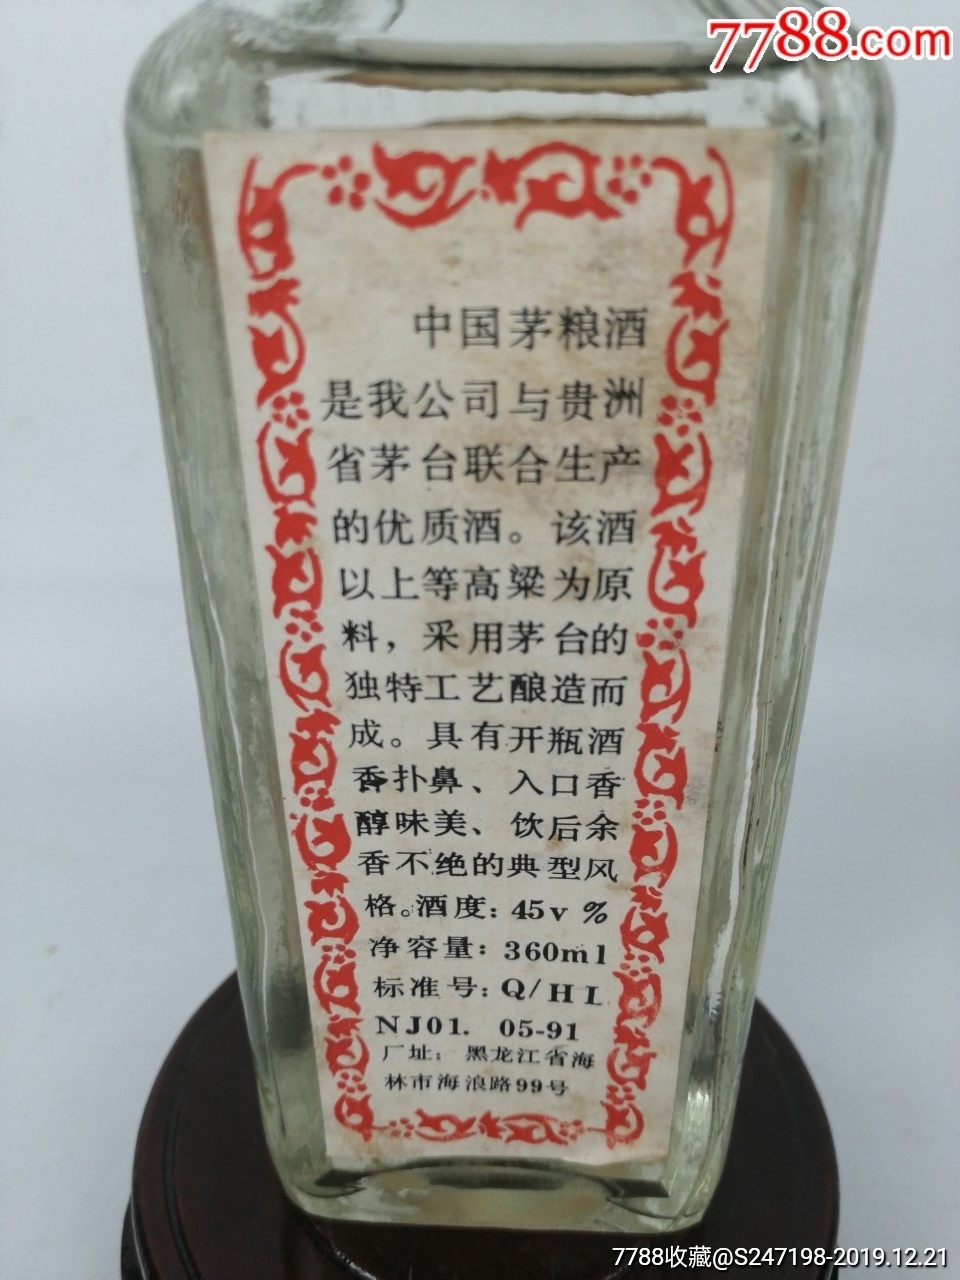 7788.com
中国茅粮酒
是我公司与贵洲
省茅台联合生产
的优质酒。该酒
以上等高粱为原
料，采用茅台的
独特工艺酿造而
成。具有开瓶酒
香扑鼻、入口香
醇味美、饮后余
香不绝的典型风
格。酒度：45v %
净容量：360ml
标准号：Q/HL
NJ01. 05-91
厂址：黑龙江省海
林市海浪路99号
7788收藏@S247198-2019.12.21